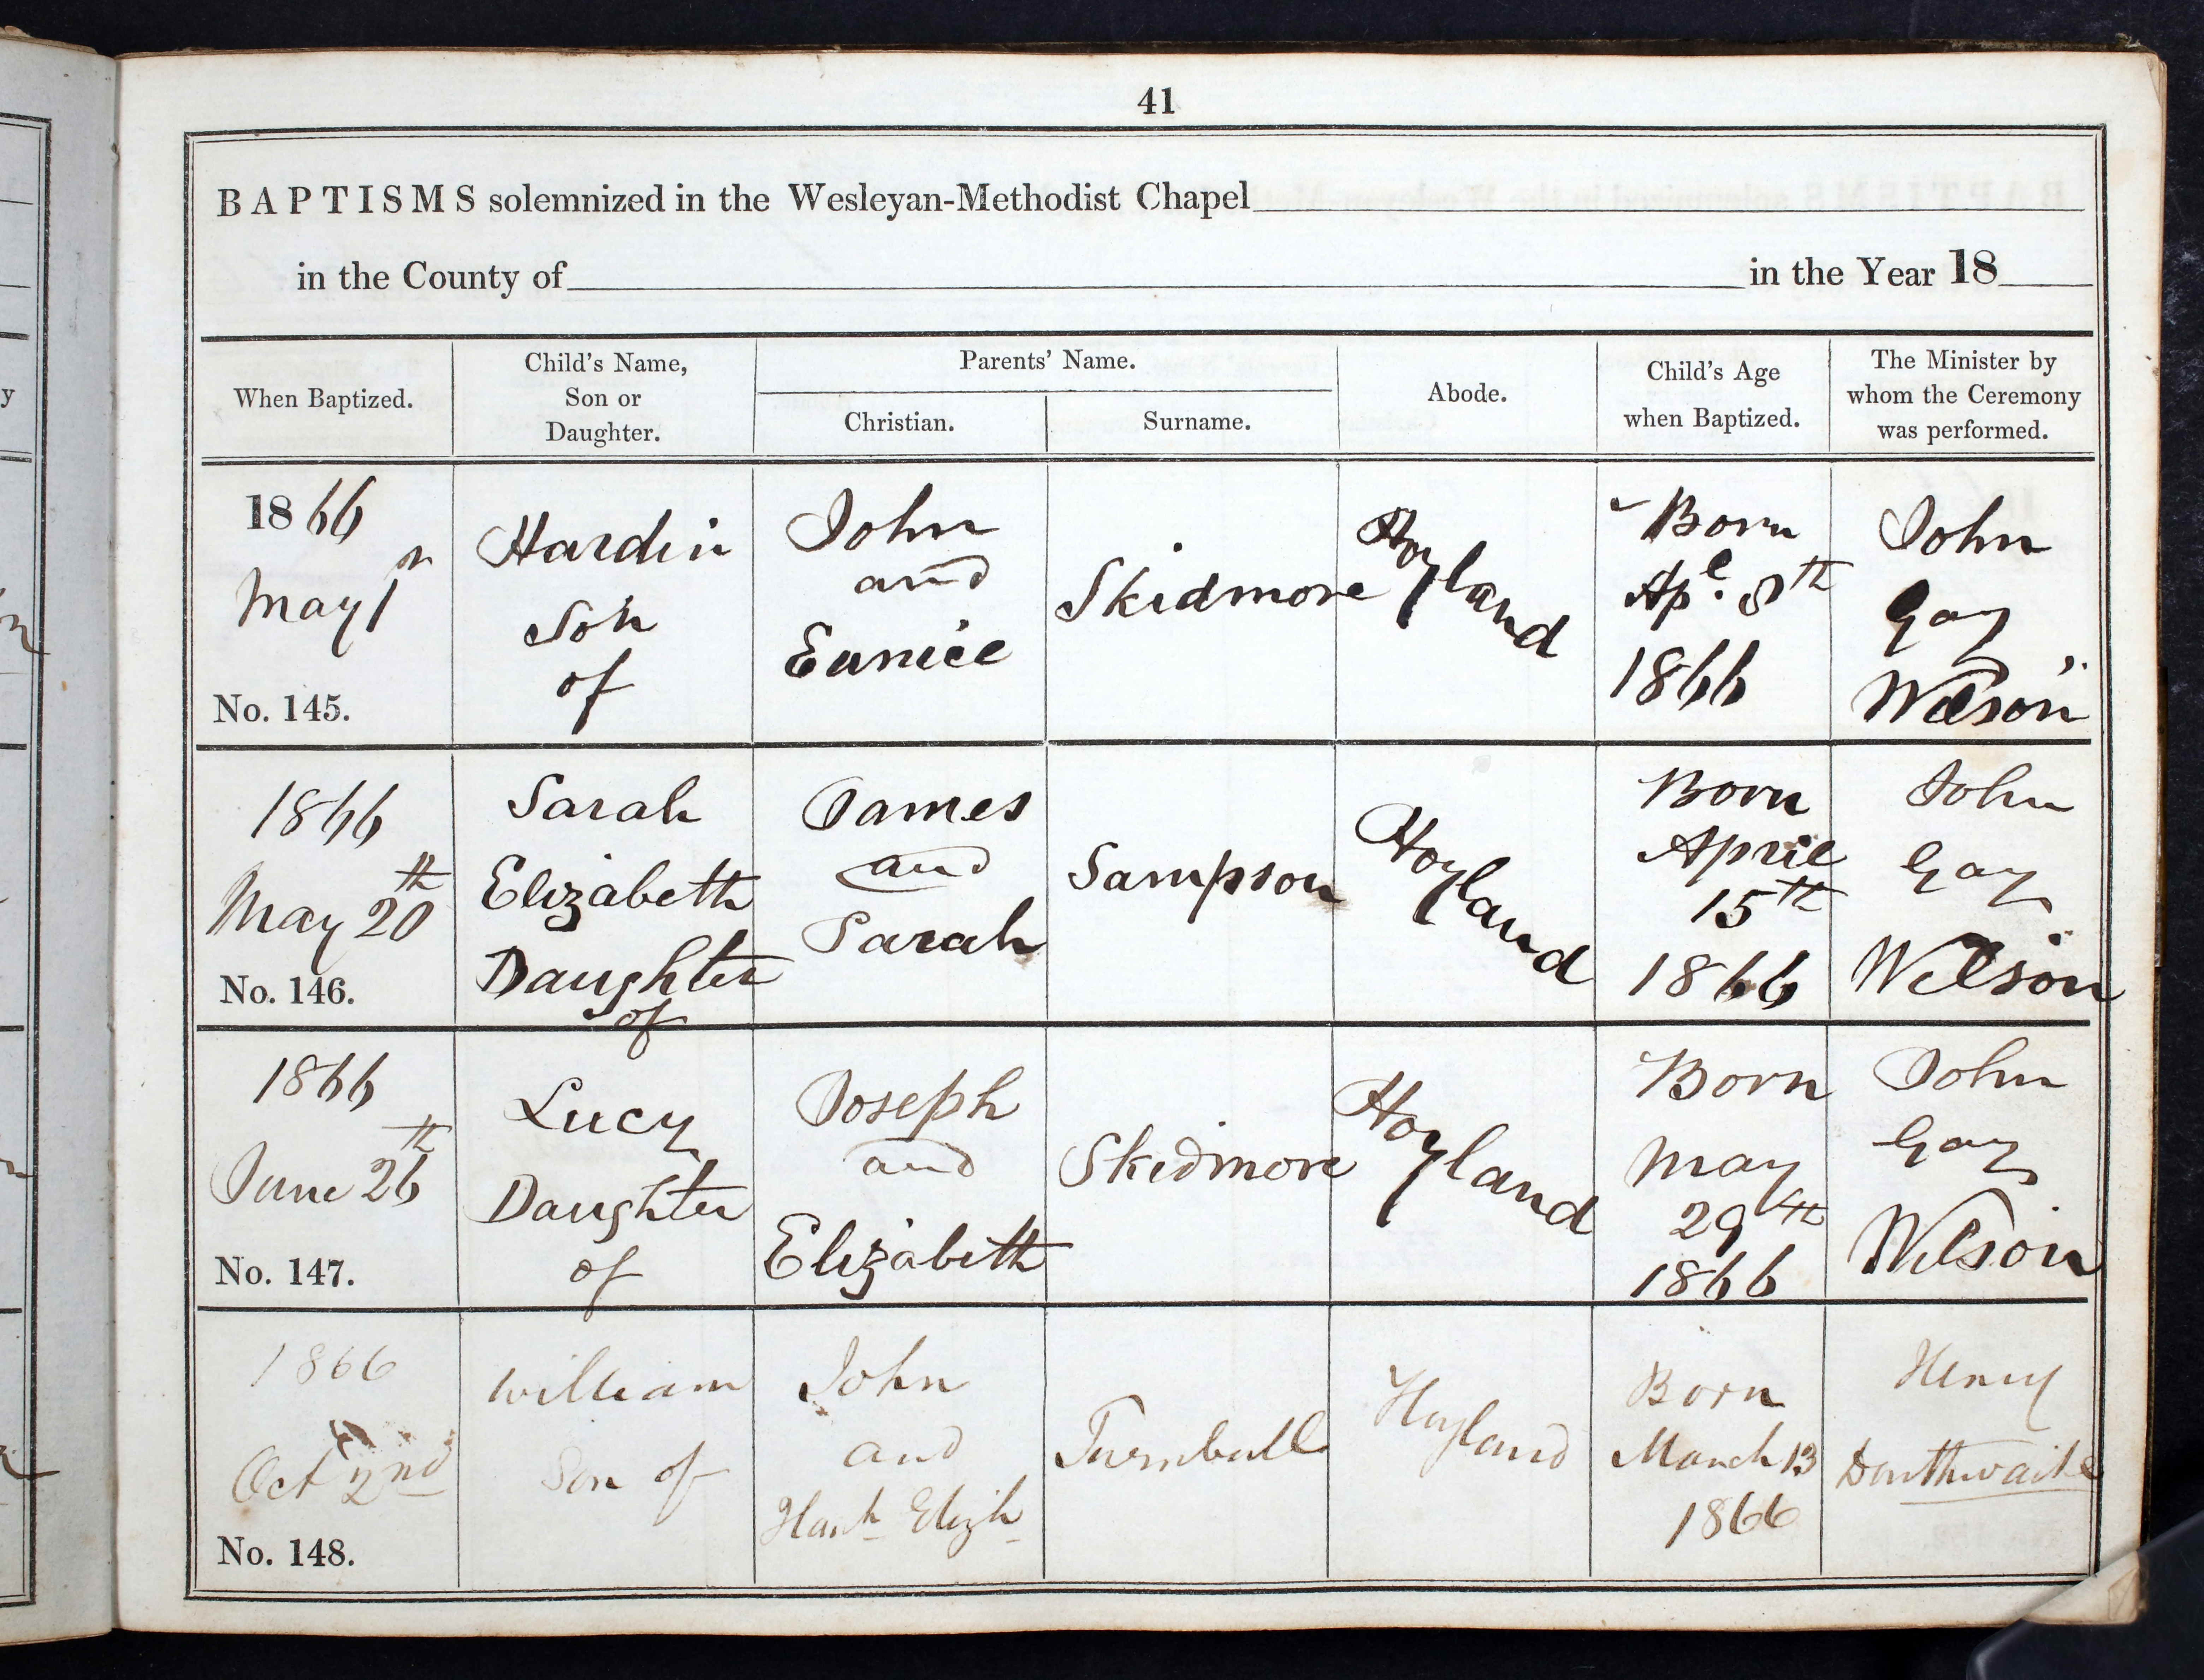 41
BAPTISMS solemnized in the Wesleyan-Methodist Chapel
in the County of in the Year 18
When Baptized.
Child's Name,
Son or
Daughter.
Parents' Name.
Christian.
Surname.
Abode.
Child's Age
when Baptized.
The Minister by
whom the Ceremony
was performed.
1866
May 1
No. 145.
Hardin
Son
of
John
and
Eunice
Skidmore
Hoyland
Born
Apl. 8th
1866
John
Gay
Wilson
1866
May 20th
No. 146.
Sarah
Elizabeth
Daughter
of
James
and
Sarah
Sampson
Hoyland
Born
April
15th
1866
John
Gay
Wilson
1866
June 26th
No. 147.
Lucy
Daughter
of
Joseph
and
Elizabeth
Skidmore
Hoyland
Born
May
29th
1866
John
Gay
Wilson
1866
Oct 2nd
No. 148.
William
Son of
John
and
Hanh Elizh
Turnbull
Hoyland
Born
March 13
1866
Henry
Douthwaite
y